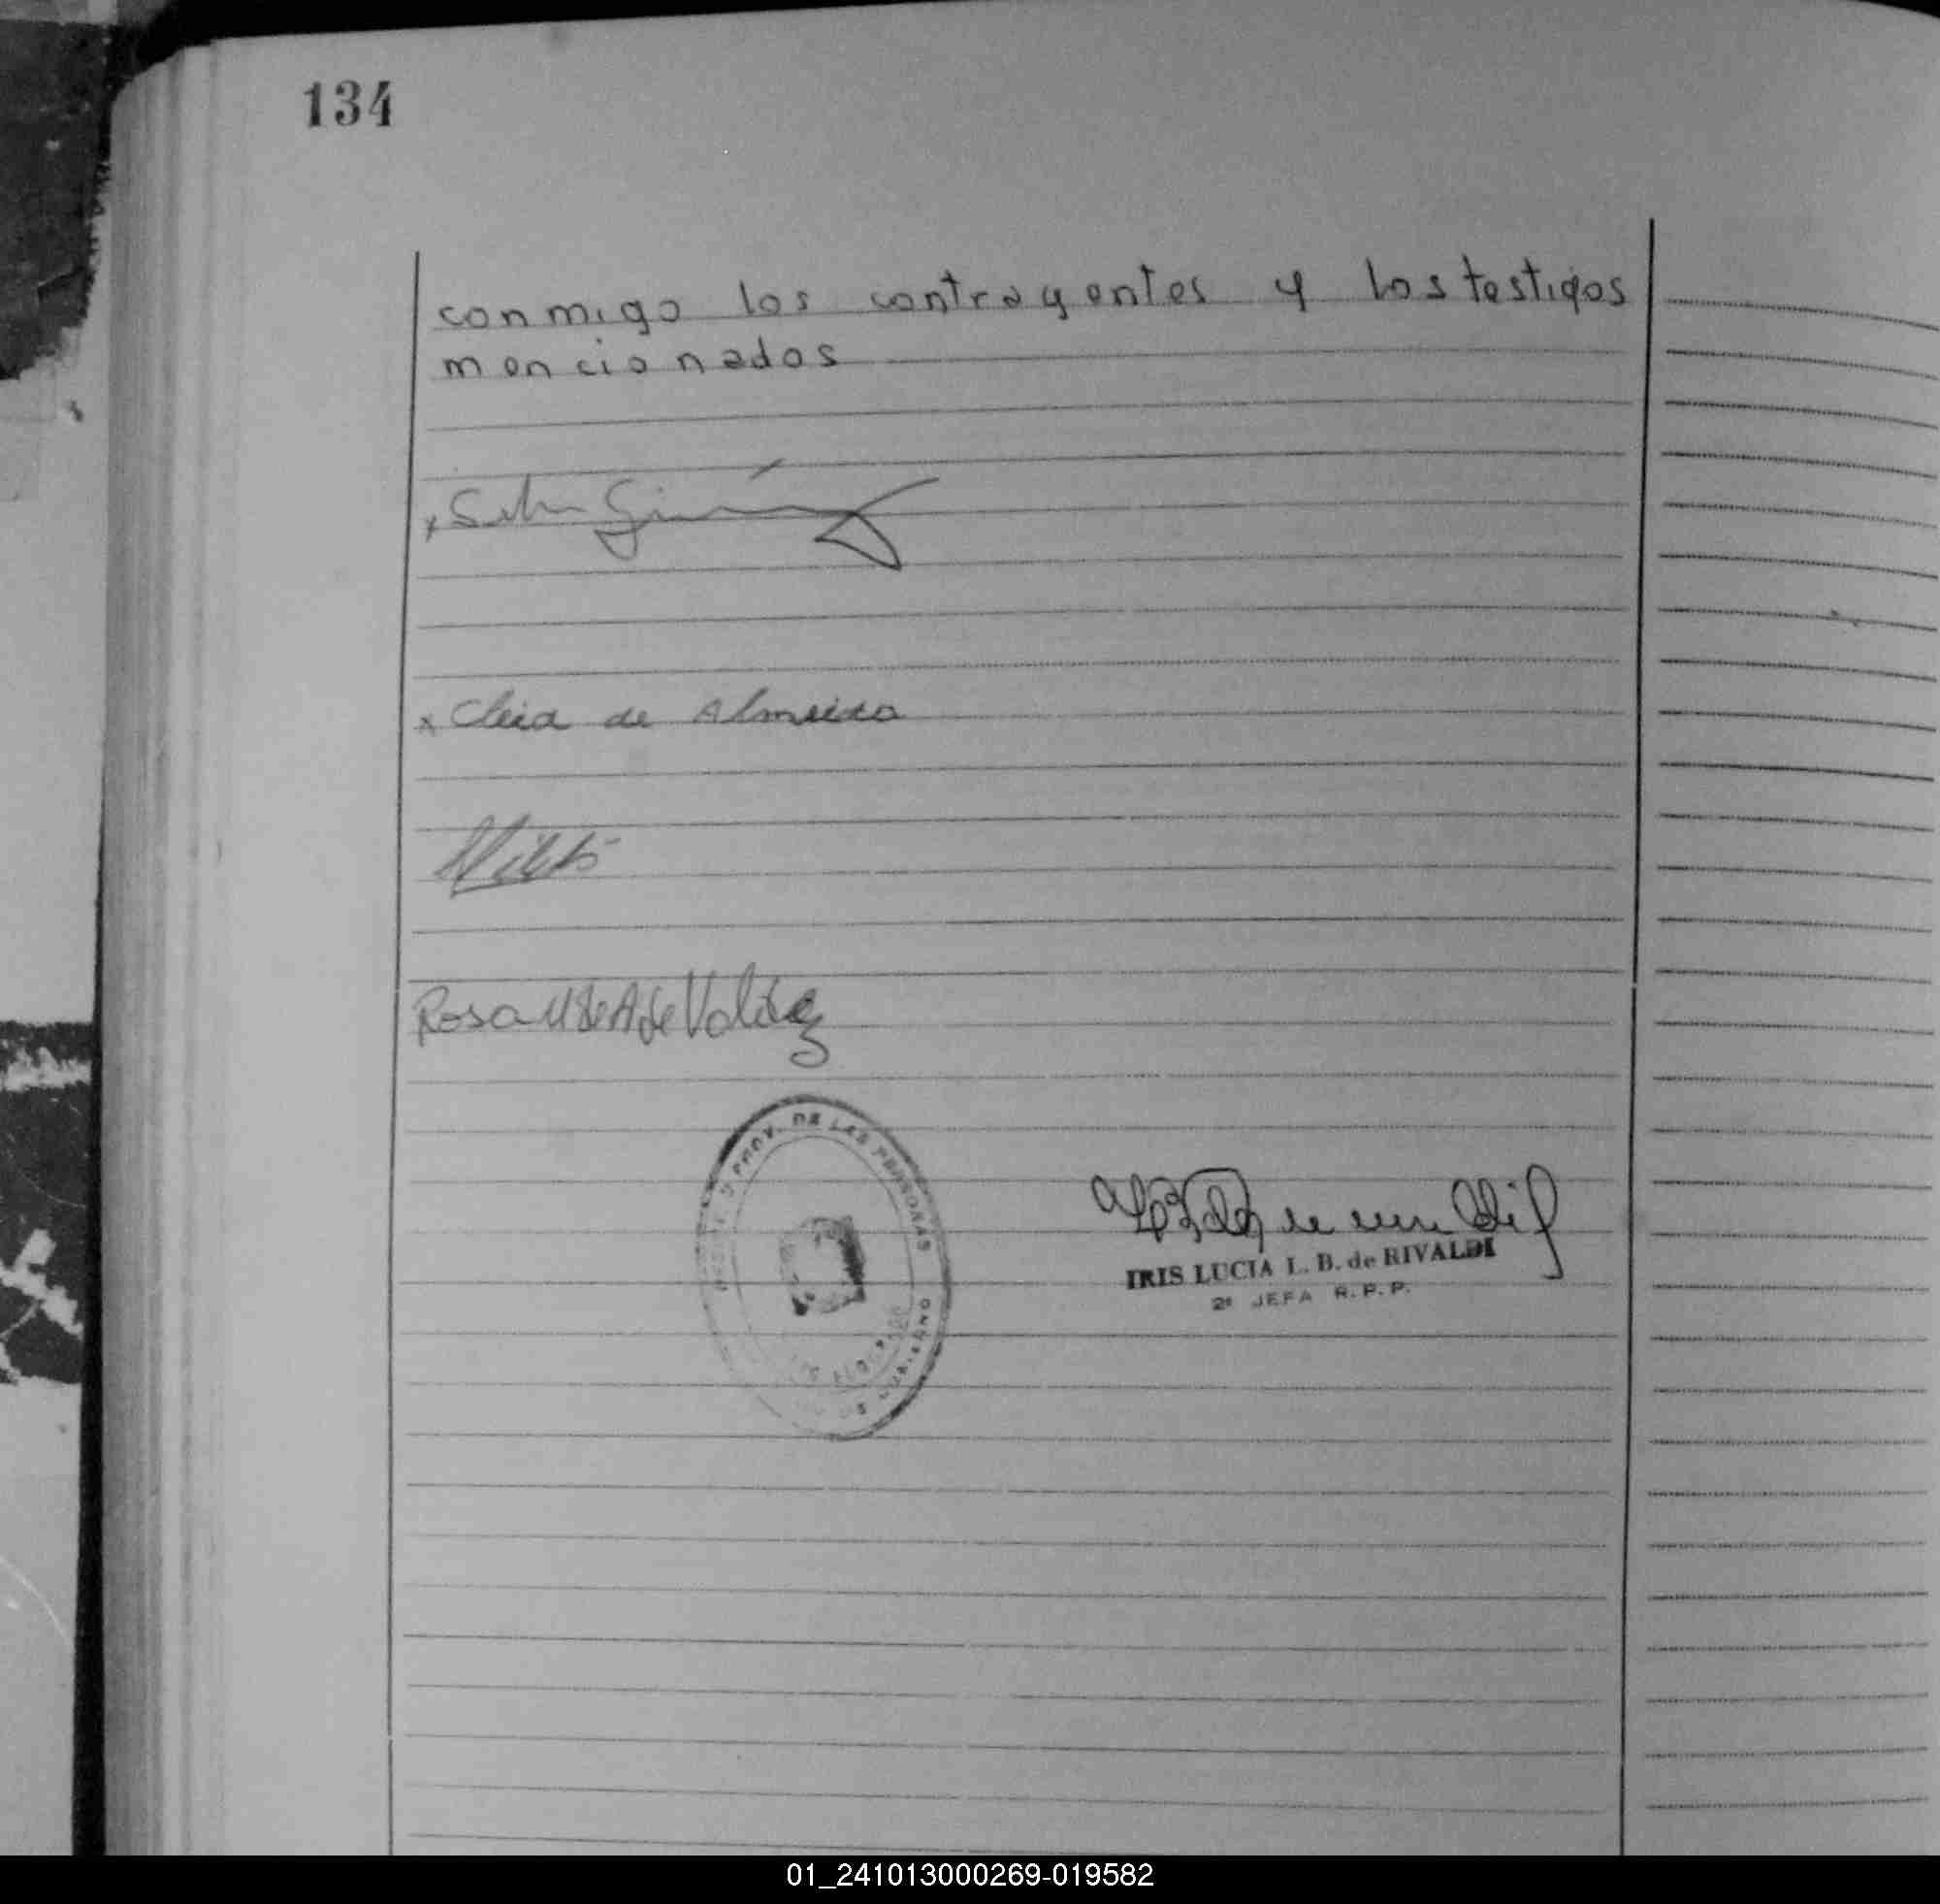 134
conmigo los contrayentes y los testigos
mencionados
x Cleia de Almeida
Rosa M de A de Valdez
PROV. DE LAS PERSONAS
IRIS LUCIA L. B. de RIVALDI
2ª JEFA R.P.P.
01_241013000269-019582